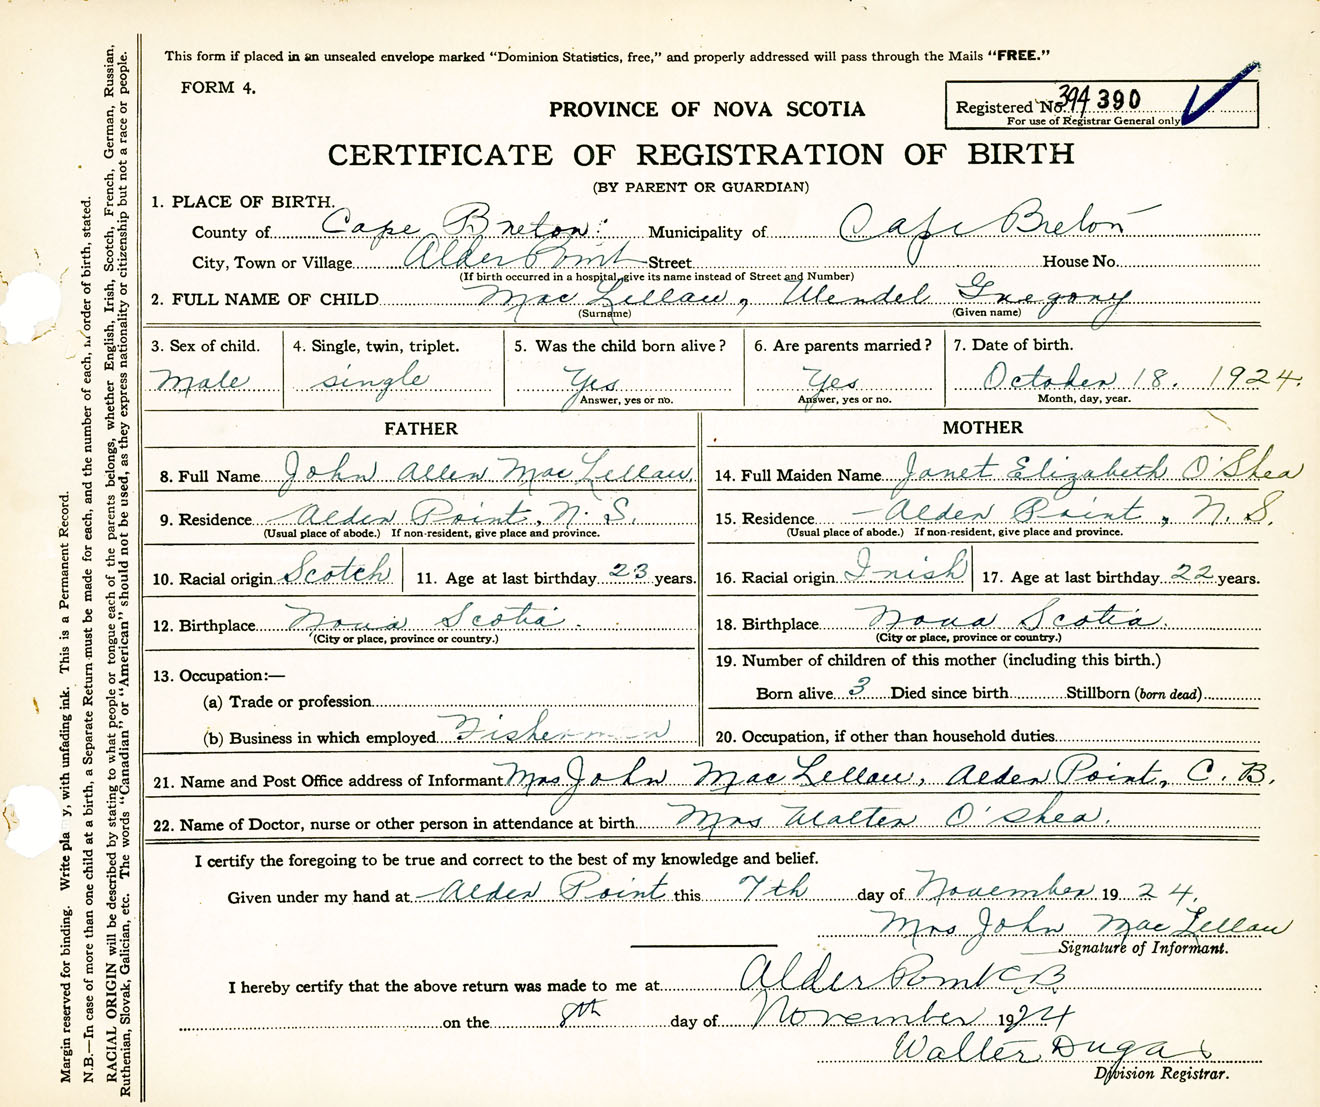 This form if placed in an unsealed envelope marked "Dominion Statistics, free," and properly addressed will pass through the Mails "FREE."
FORM 4.
PROVINCE OF NOVA SCOTIA
Registered No. 394 390
For use of Registrar General only
CERTIFICATE OF REGISTRATION OF BIRTH
(BY PARENT OR GUARDIAN)
1. PLACE OF BIRTH.
County of Cape Breton. Municipality of Cape Breton
City, Town or Village Alder Point Street House No.
(If birth occurred in a hospital, give its name instead of Street and Number)
2. FULL NAME OF CHILD Mac Lellan, Wendel Gregory
(Surname) (Given name)
3. Sex of child. 4. Single, twin, triplet. 5. Was the child born alive? 6. Are parents married? 7. Date of birth.
Male single Yes Yes October 18. 1924.
Answer, yes or no. Answer, yes or no. Month, day, year.
FATHER MOTHER
8. Full Name John Allen Mac Lellan. 14. Full Maiden Name Janet Elizabeth O'Shea
9. Residence Alder Point, N. S. 15. Residence Alder Point, N. S.
(Usual place of abode.) If non-resident, give place and province. (Usual place of abode.) If non-resident, give place and province.
10. Racial origin Scotch 11. Age at last birthday 23 years. 16. Racial origin Irish 17. Age at last birthday 22 years.
12. Birthplace Nova Scotia. 18. Birthplace Nova Scotia.
(City or place, province or country.) (City or place, province or country.)
19. Number of children of this mother (including this birth.)
13. Occupation:—
Born alive 3 Died since birth Stillborn (born dead)
(a) Trade or profession
(b) Business in which employed Fisherman 20. Occupation, if other than household duties
21. Name and Post Office address of Informant Mrs John Mac Lellan, Alder Point, C. B.
22. Name of Doctor, nurse or other person in attendance at birth Mrs Walter O'Shea.
I certify the foregoing to be true and correct to the best of my knowledge and belief.
Given under my hand at Alder Point this 7th day of November 1924.
Mrs John Mac Lellan
Signature of Informant.
I hereby certify that the above return was made to me at Alder Point C.B.
on the 8th day of November 1924
Walter Dugas
Division Registrar.
Margin reserved for binding. Write pla y, with unfading ink. This is a Permanent Record.
N.B.—In case of more than one child at a birth, a Separate Return must be made for each, and the number of each, in order of birth, stated.
RACIAL ORIGIN will be described by stating to what people or tongue each of the parents belongs, whether English, Irish, Scotch, French, German, Russian,
Ruthenian, Slovak, Galician, etc. The words "Canadian" or "American" should not be used, as they express nationality or citizenship but not a race or people.